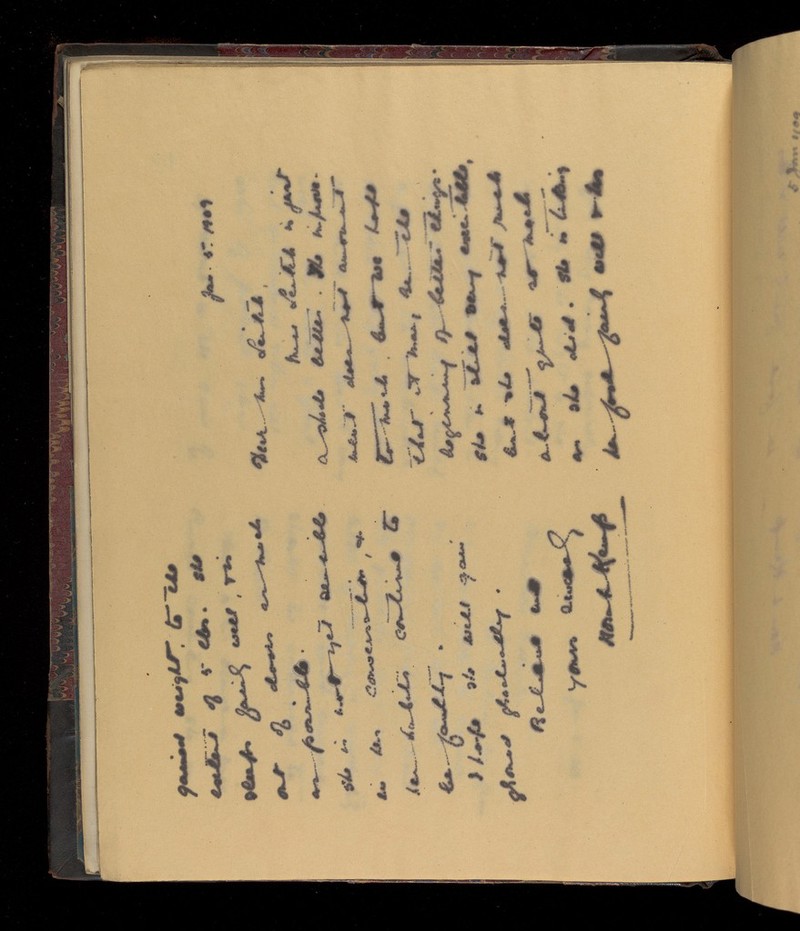 Jan. 5. 1909
Dear Mrs Leitch,
Miss Leitch is just
a shade better. The improve-
ment does not amount
to much, but we hope
that it may be the
beginning of better things.
She is still very excitable,
but she does not rush
about quite so much
as she did. She is taking
her food fairly well & has
gained weight to the
extent of 5 lbs. She
sleeps fairly well, & is
out of doors as much
as possible.
She is not yet sensible
in her conversation, &
her habits continue to
be faulty.
I hope she will gain
ground gradually.
Believe me
yours sincerely